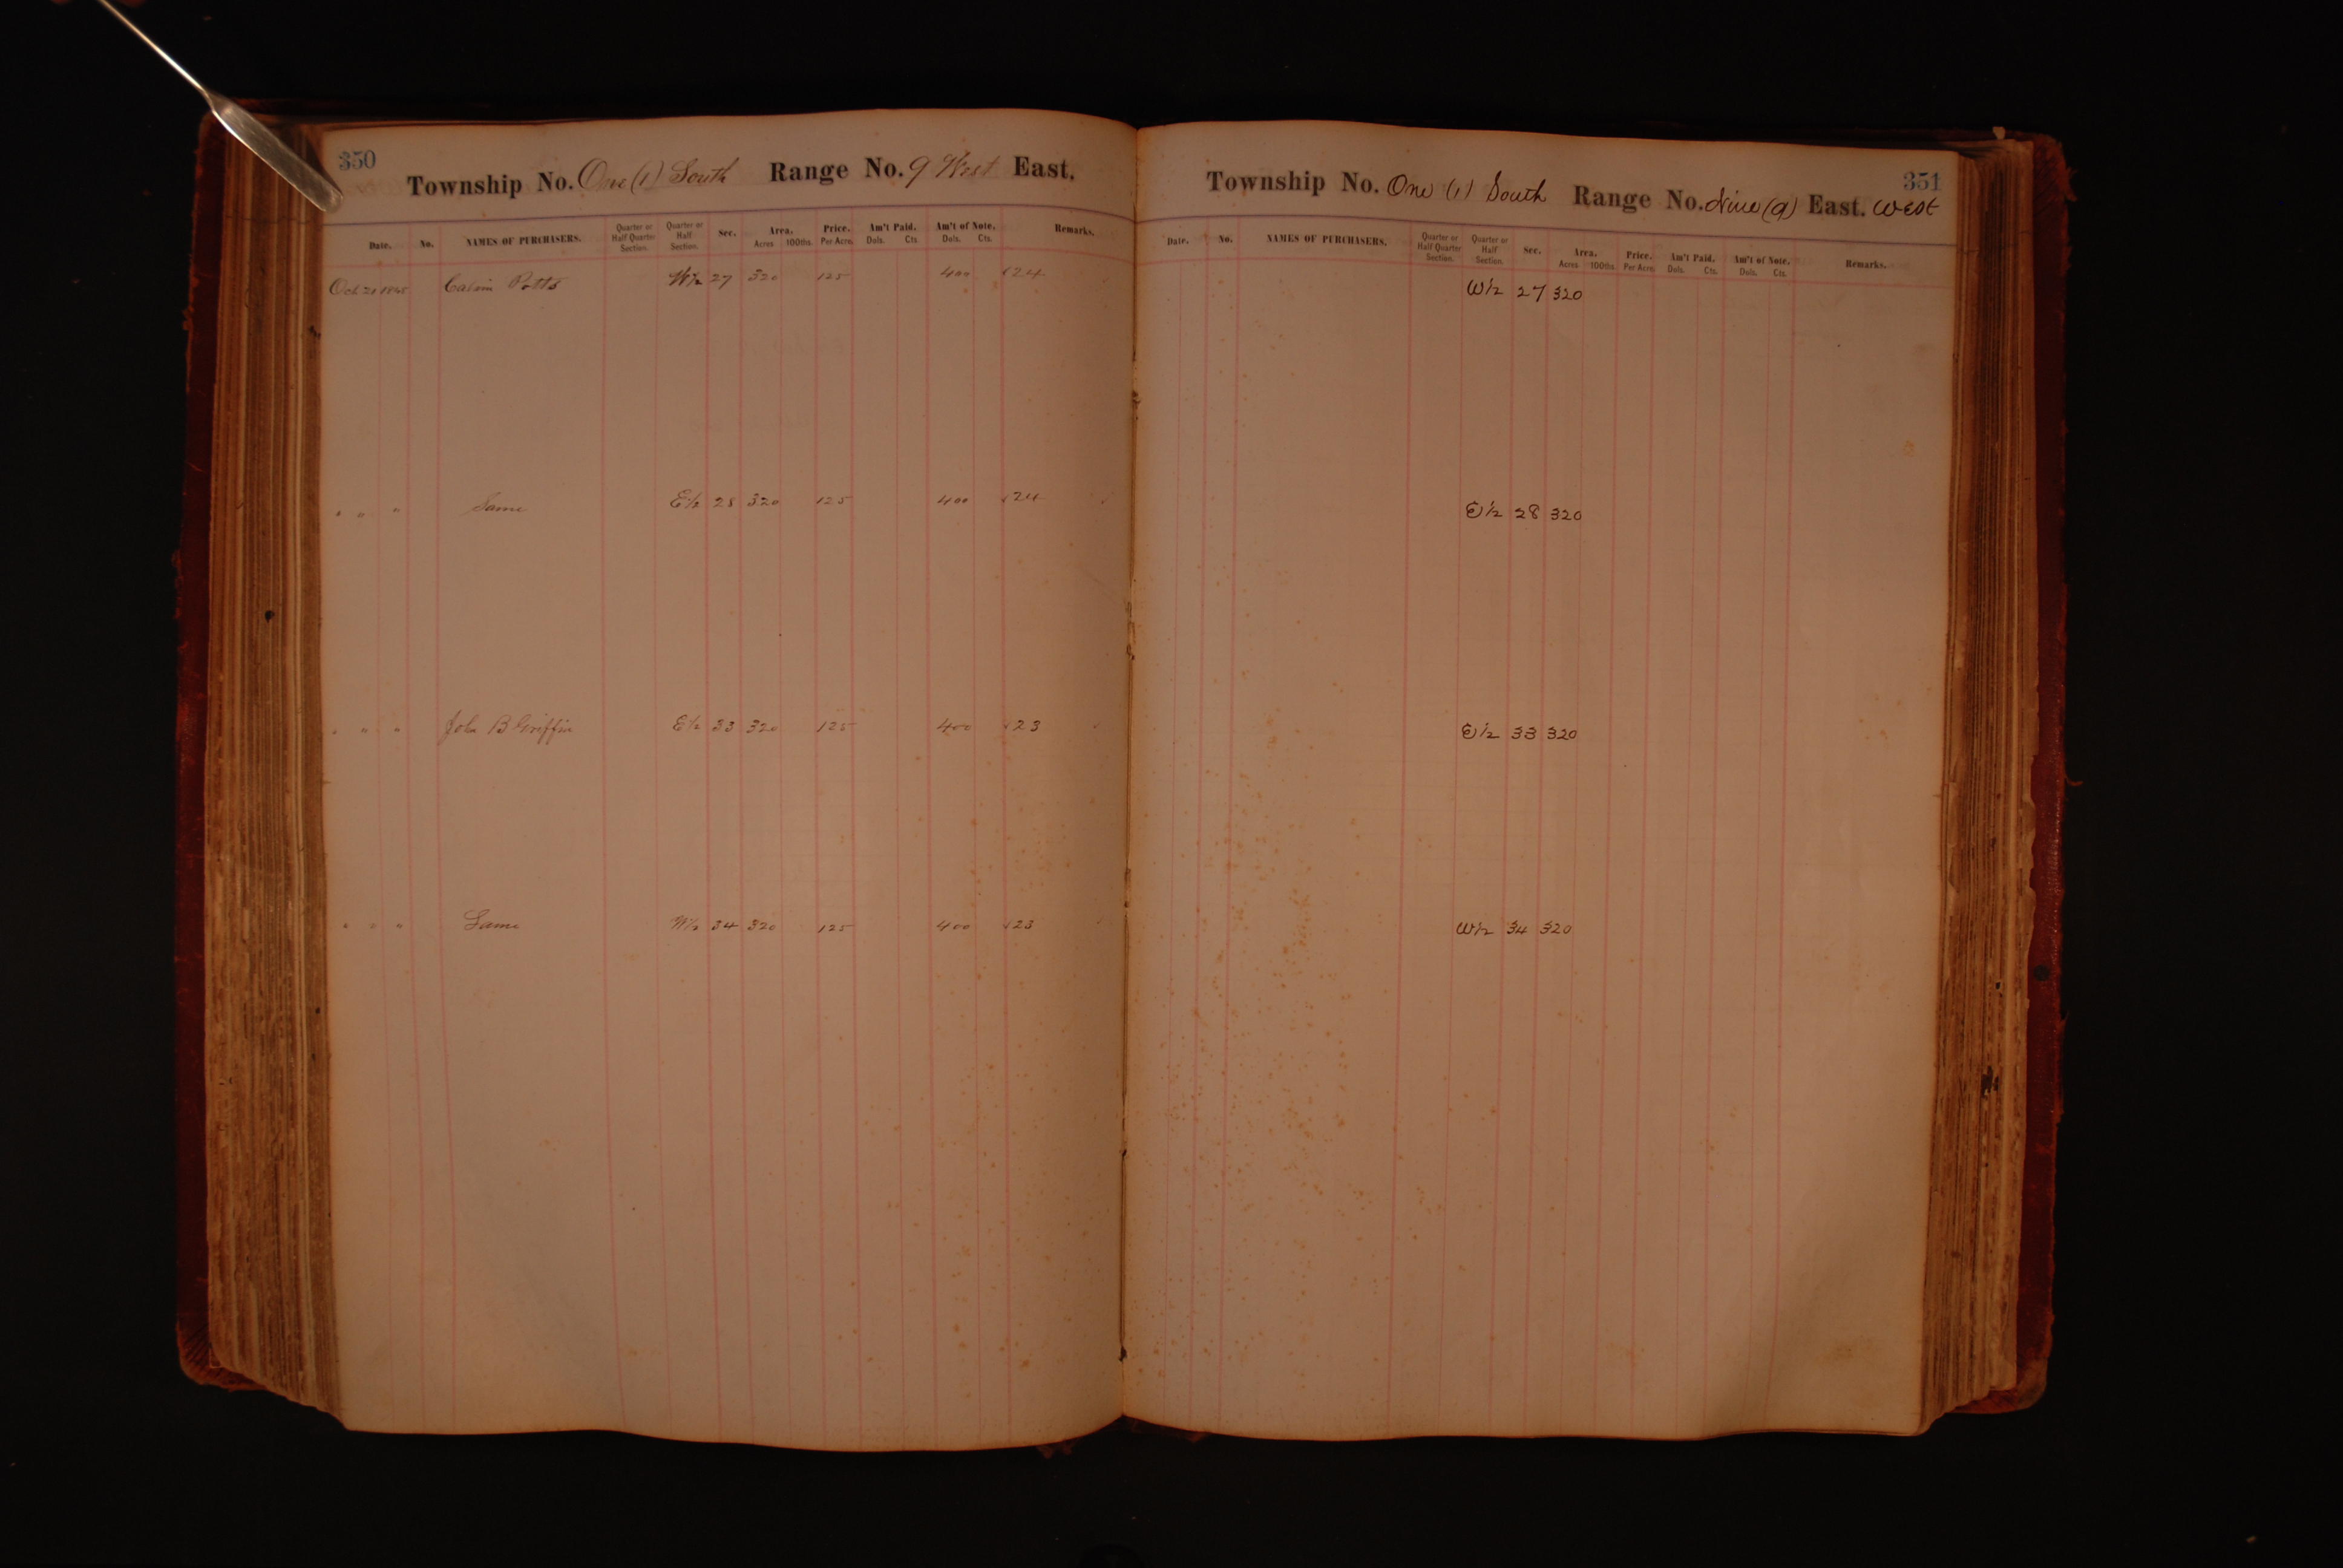 350
Township No. One (1) South Range No. 9 West East.
Date. No. NAMES OF PURCHASERS. Quarter or Half Quarter Section. Quarter or Half Section. Sec. Area. Acres 100ths. Price. Per Acre. Am't Paid. Dols. Cts. Am't of Note. Dols. Cts. Remarks.
Oct 21 Calvin Potts W½ 27 320 125 400 √24
" " " Same E½ 28 320 125 400 √24 √
" " " John B Griffin E½ 33 320 125 400 √23
" " " Same W½ 34 320 125 400 √23
351
Township No. One (1) South Range No. Nine (9) East. West
Date. No. NAMES OF PURCHASERS. Quarter or Half Quarter Section. Quarter or Half Section. Sec. Area. Acres 100ths. Price. Per Acre. Am't Paid. Dols. Cts. Am't of Note. Dols. Cts. Remarks.
W½ 27 320
E½ 28 320
E½ 33 320
W½ 34 320